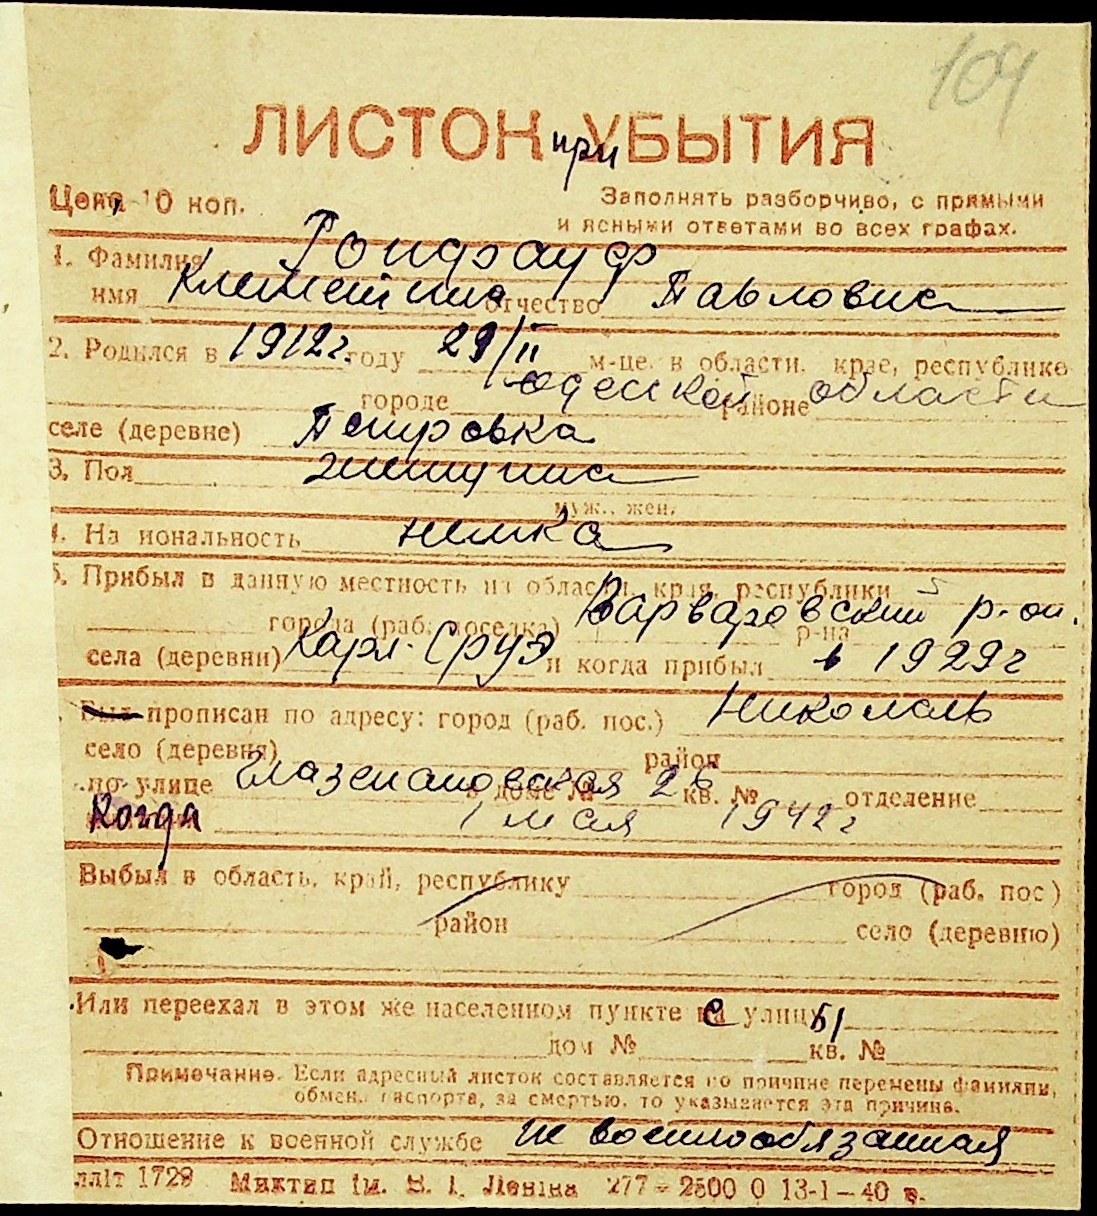 104
ЛИСТОК при УБЫТИЯ
Цена 10 коп.
Заполнять разборчиво, с прямыми
и ясными ответами во всех графах.
1. Фамилия Гондрауф
имя Клементина отчество Павловна
2. Родился в 1912 г. году 29/II м-це. в области, крае, республике
городе Одесской районе области
селе (деревне) Петровка
3. Пол женщина
муж., жен.
4. Национальность немка
5. Прибыл в данную местность из области, края, республики
города (раб. поселка) Варваровский р-он. р-на
села (деревни) Карл-Сруэ и когда прибыл в 1929 г
Был прописан по адресу: город (раб. пос.) Николаев
село (деревня) район
по улице в доме № 26 кв. № отделение
Когда 1 мая 1942 г
Выбыл в область, край, республику город (раб. пос)
район село (деревню)
Или переехал в этом же населенном пункте с улицы
дом № кв. №
Примечание. Если адресный листок составляется по причине перемены фамилии,
обмена паспорта, за смертью, то указывается эта причина.
Отношение к военной службе не военнообязанная
лліт 1728 Миктип ім. В. І. Леніна 277 - 2500 0 13-1-40 р.